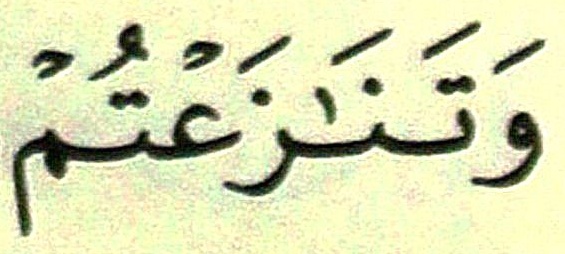 وَتَنَـٰزَعْتُمْ